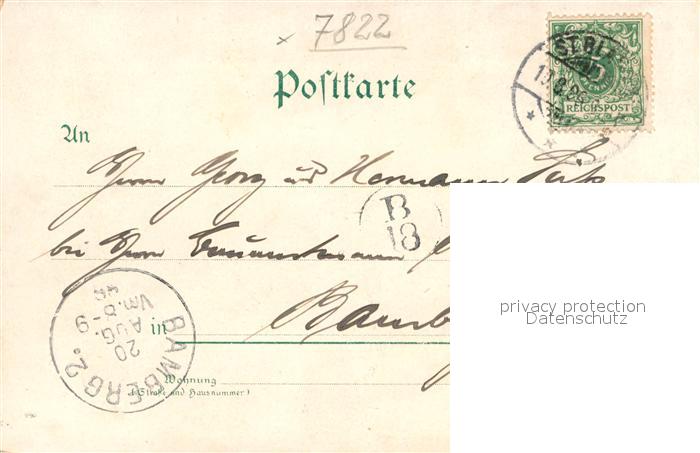 7822
Postkarte
5
REICHSPOST
An
Herrn Georg und Hermann
B
18
bei Herrn
in Bamb
privacy protection
Datenschutz
BAMBERG 2.
20
AUG.
Vm. 8-9
98
Wohnung
(Straße und Hausnummer)